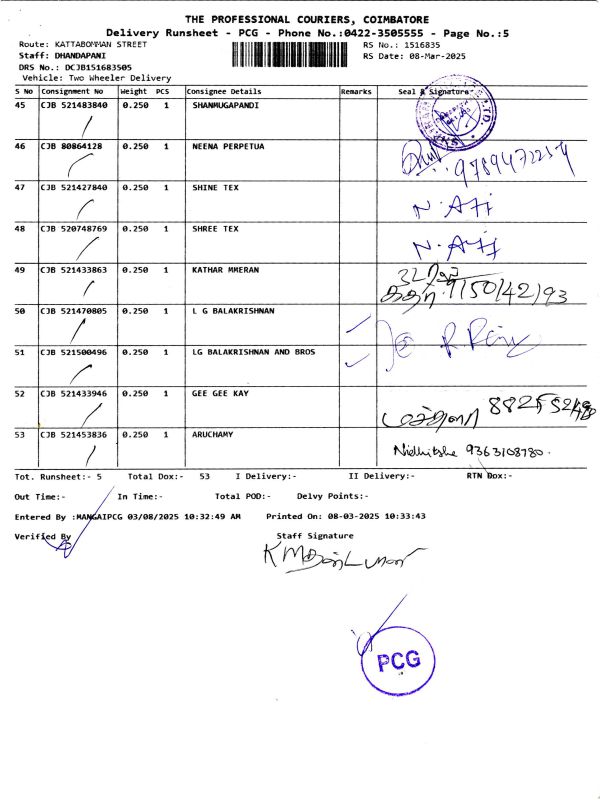 THE PROFESSIONAL COURIERS, COIMBATORE
Delivery Runsheet - PCG - Phone No.:0422-3505555 - Page No.:5
Route: KATTABOMMAN STREET
RS No.: 1516835
Staff: DHANDAPANI
RS Date: 08-Mar-2025
DRS No.: DCJB151683505
Vehicle: Two Wheeler Delivery
S No Consignment No Weight PCS Consignee Details Remarks Seal & Signature
45 CJB 521483840 0.250 1 SHANMUGAPANDI
46 CJB 80864128 0.250 1 NEENA PERPETUA
47 CJB 521427840 0.250 1 SHINE TEX N. AJi
48 CJB 520748769 0.250 1 SHREE TEX N. AJi
49 CJB 521433863 0.250 1 KATHAR MMERAN 9150142193
50 CJB 521470805 0.250 1 L G BALAKRISHNAN
51 CJB 521500496 0.250 1 LG BALAKRISHNAN AND BROS
52 CJB 521433946 0.250 1 GEE GEE KAY
53 CJB 521453836 0.250 1 ARUCHAMY 9363108780.
Tot. Runsheet:- 5 Total Dox:- 53 I Delivery:- II Delivery:- RTN Dox:-
Out Time:- In Time:- Total POD:- Delvy Points:-
Entered By :MANGAIPCG 03/08/2025 10:32:49 AM Printed On: 08-03-2025 10:33:43
Verified By Staff Signature
PCG